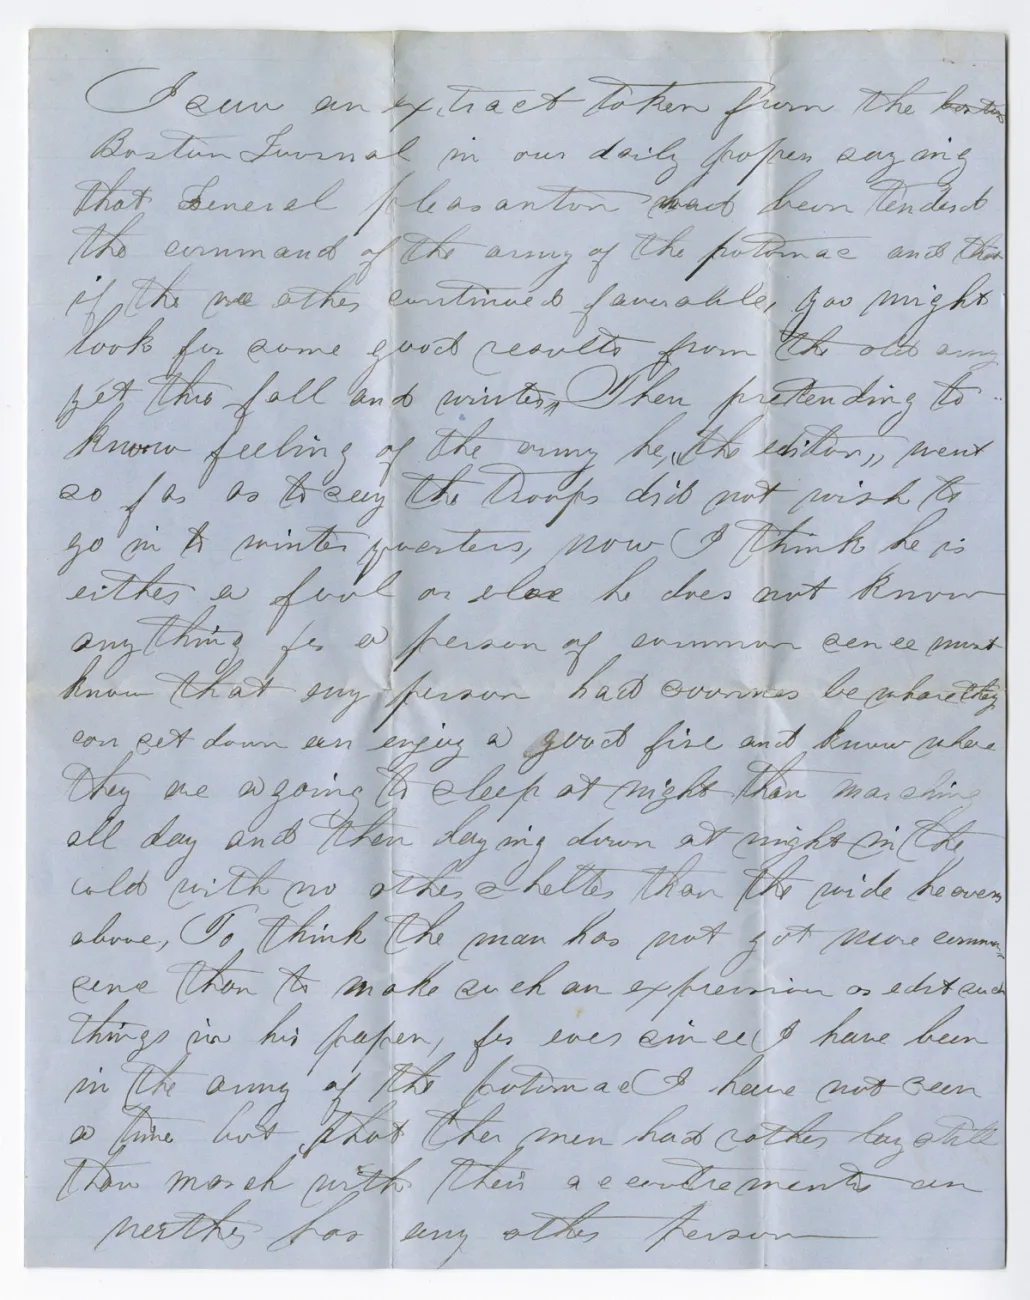 I saw an extract taken from the boston
Boston Journal in our daily papers saying
that General pleasanton had been tenderd
the command of the army of the potomac and that
if the weather continued favorable, you might
look for some good results from the old army
yet this fall and winter,, Then pretending to
know feeling of the army he, "the editor,, went
so far as to say the troops did not wish to
go in to winter quarters, now I think he is
either a fool or else he does not know
anything for a person of common sence must
know that any person had sooner be whare they
can set down an enjoy a good fire and know where
they are agoing to sleep at night than marching
all day and then laying down at night in the
cold with no other shelter than the wide heavens
above, To think the man has not got more common
sence than to make such an expression or edit such
things in his paper, for ever since I have been
in the army of the potomac I have not seen
a time but that ther men had rather lay still
than march with their accoutrements an
neither has any other person